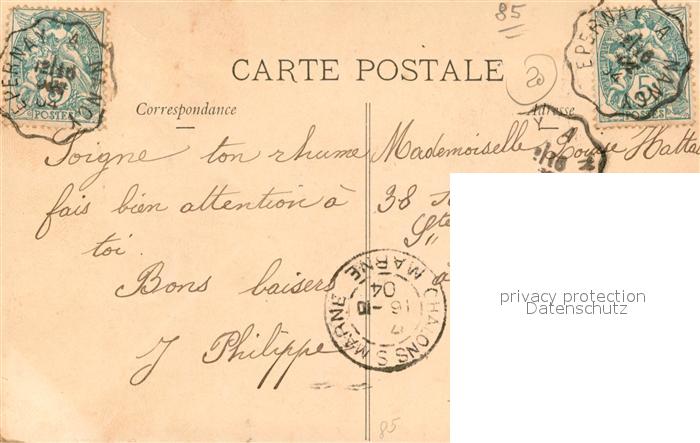 85
CARTE POSTALE
Correspondance
Adresse
EPERNAY A NANCY
POSTES
EPERNAY A NANCY
POSTES
Soigne ton rhume
fais bien attention à
toi.
Bons baisers
J Philippe
Mademoiselle Louise
38
Ste
CHALONS S MARNE
16
04
MARNE
privacy protection
Datenschutz
85